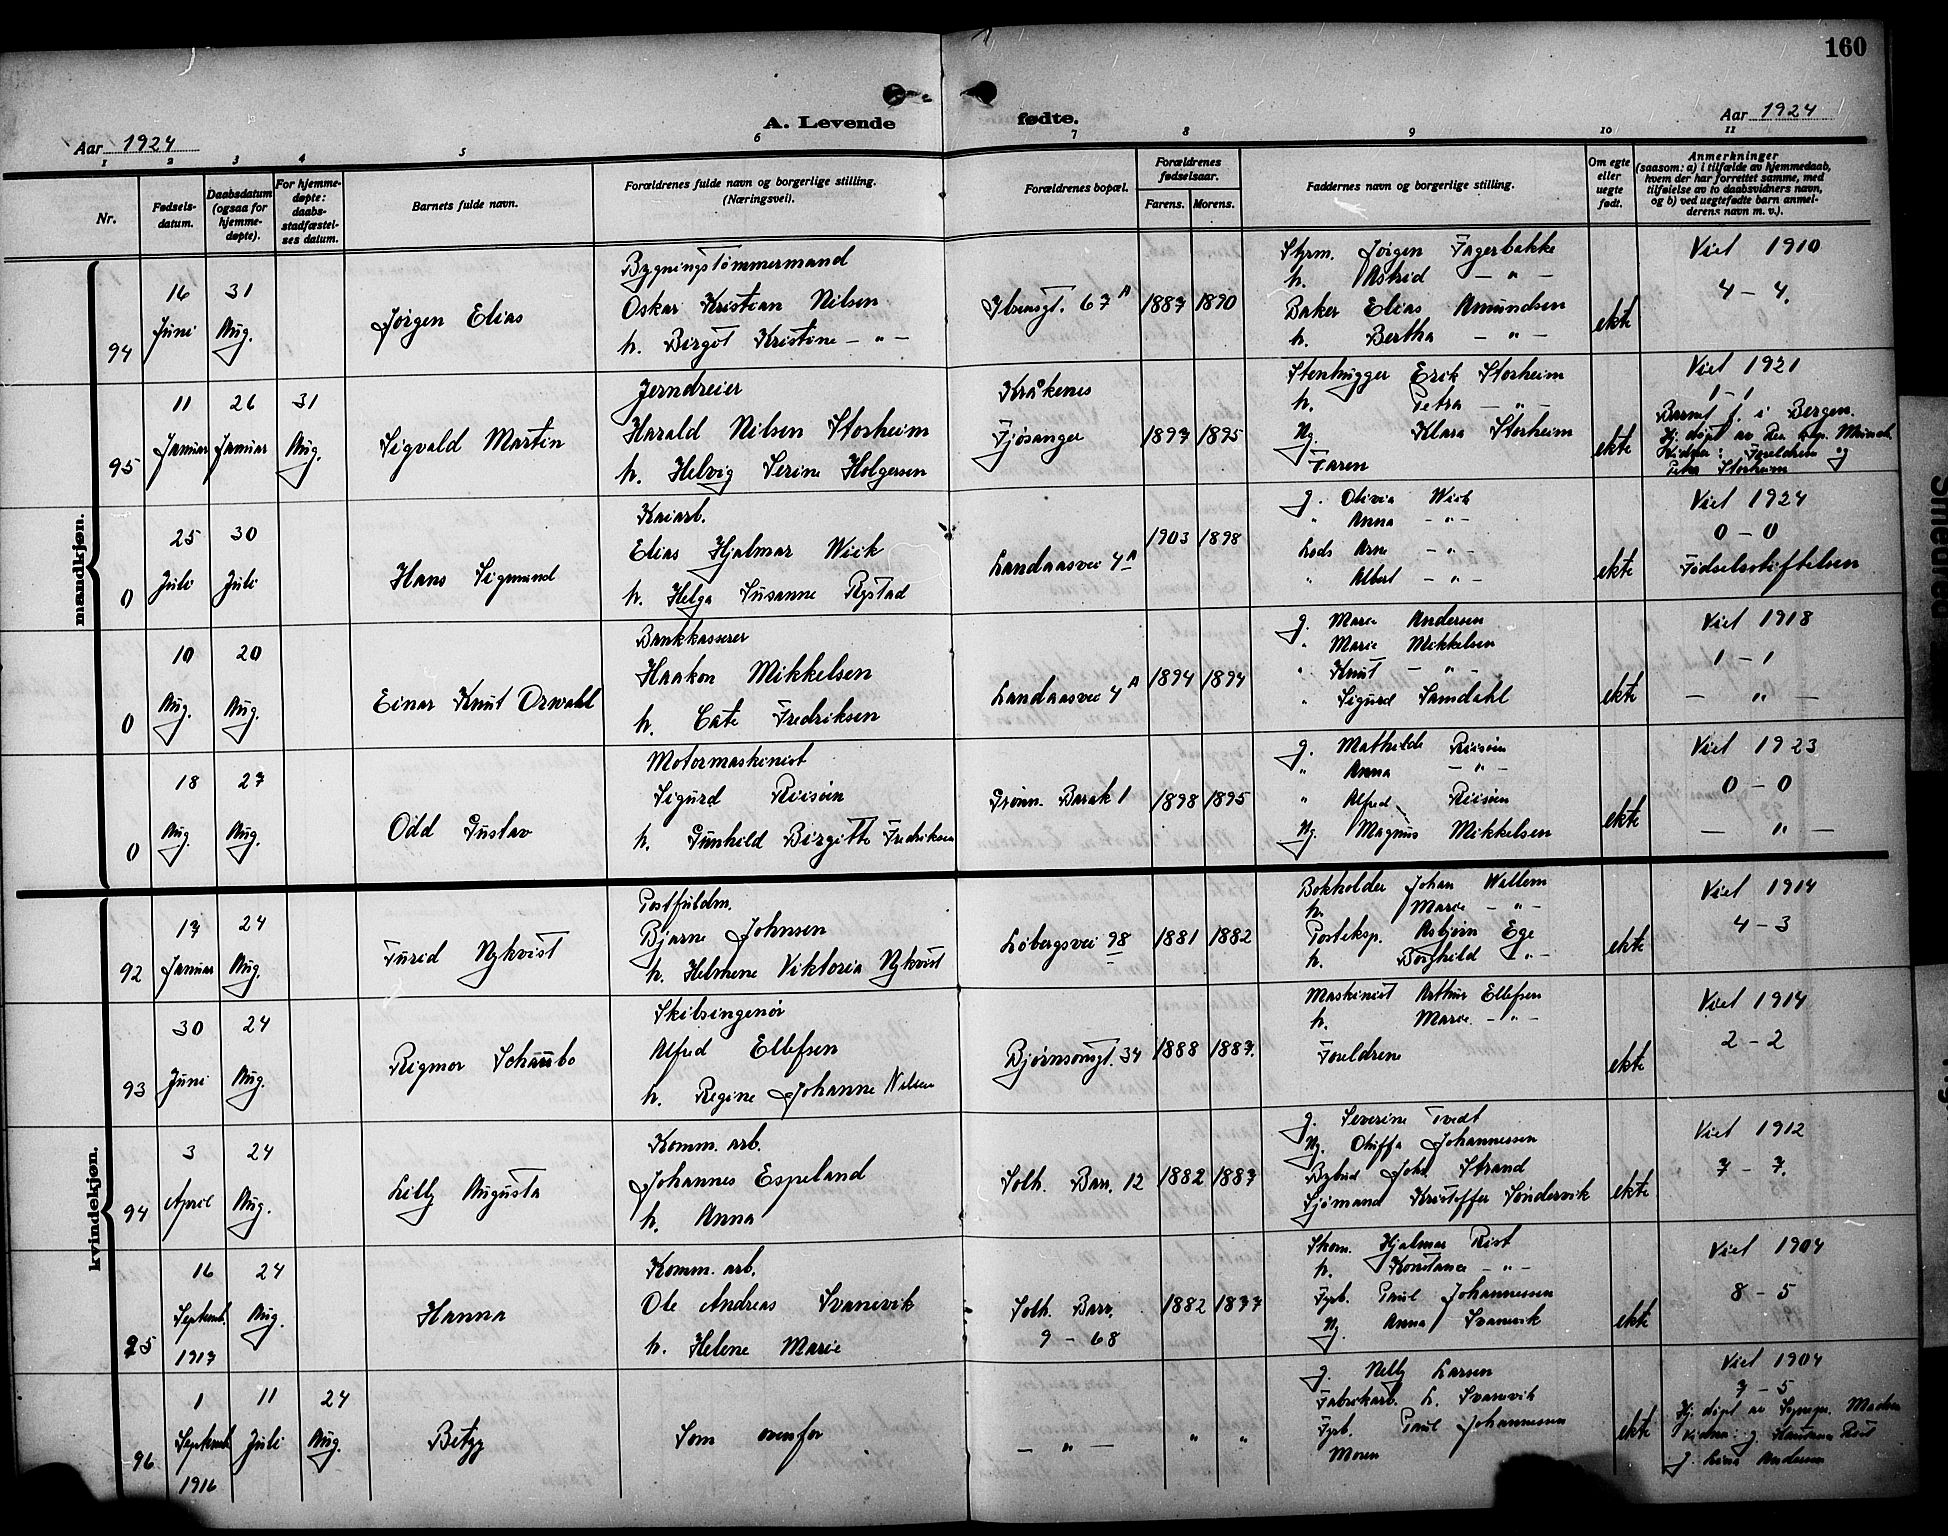 160
A. Levende fødte.
Aar 1924
Aar 1924
1 2 3 4 5 6 7 8 9 10 11
Nr.
Fødsels-
datum.
Daabsdatum
(ogsaa for
hjemme-
døpte).
For hjemme-
døpte:
daabs-
stadfæstel-
ses datum.
Barnets fulde navn.
Forældrenes fulde navn og borgerlige stilling.
(Næringsvei).
Forældrenes bopæl.
Forældrenes
fødselsaar.
Farens. Morens.
Faddernes navn og borgerlige stilling.
Om egte
eller
uegte
født.
Anmerkninger
(saasom: a) i tilfælde av hjemmedaab,
hvem der har forrettet samme, med
tilføielse av to daabsvidners navn,
og b) ved uegtefødte barn anmel-
derens navn m. v.).
mandkjøn.
94
16 Juni
31 Aug.
Jørgen Elias
Bygningstømmermand
Oskar Kristian Nilsen
h. Birgit Kristine — " —
Ibsensgt. 67 A
1887 1890
Styrm. Jørgen Fagerbakke
h. Astrid — " —
Baker Elias Amundsen
h. Bertha — " —
ekte
Viet 1910
4 – 4.
95
11 Januar
26 Januar
31 Aug.
Sigvald Martin
Jerndreier
Harald Nilsen Storheim
h. Helvig Serine Holgersen
Kråkenes
Fjøsanger
1897 1895
Stenhugger Erik Storheim
h. Petra — " —
Ug. Klara Storheim
Faren
ekte
Viet 1921
1 – 1
Barnet f. i Bergen.
Hj. døpt av
Foreldrene og
Petra Storheim
0
25 Juli
30 Juli
Hans Sigmund
Kaiarb.
Elias Hjalmar Wiik
h. Helga Susanne Rystad
Landaasvei 4 A
1903 1898
g. Olivia Wiik
" Anna — " —
Lods Arne — " —
" Albert — " —
ekte
Viet 1924
0 – 0
Fødselsstiftelsen
0
10 Aug.
20 Aug.
Einar Knut Oswald
Bankkasserer
Haakon Mikkelsen
h. Cate Fredriksen
Landaasvei 4 A
1894 1894
g. Marie Andersen
" Marie Mikkelsen
" Knut — " —
" Sigurd Samdahl
ekte
Viet 1918
1 – 1
— " —
0
18 Aug.
27 Aug.
Odd Gustav
Motormaskinist
Sigurd Riisøen
h. Gunhild Birgitte Fredriksen
Grønn. Barak 1
1898 1895
g. Mathilde Riisøen
" Anna — " —
" Alfred Riisøen
Ug. Magnus Mikkelsen
ekte
Viet 1923
0 – 0
— " —
kvindekjøn.
92
17 Januar
24 Aug.
Turid Nykvist
Postfuldm.
Bjarne Johnsen
h. Helmine Viktoria Nykvist
Løbergsvei 98
1881 1882
Bokholder Johan Willem
h. Marie — " —
Posteksp. Asbjørn Ege
h. Borghild " —
ekte
Viet 1914
4 – 3
93
30 Juni
24 Aug.
Rigmor Schaubo
Skibsingeniør
Alfred Ellefsen
h. Regine Johanne Nilsen
Bjørnsonsgt. 34
1888 1887.
Maskinist Arthur Ellefsen
h. Marie — " —
Foreldrene
ekte
Viet 1914
2 – 2
94
3 April
24 Aug.
Lilly Augusta
Komm. arb.
Johannes Espeland
h. Anna
Solh. Barr. 12
1882 1887
g. Severine Tvedt
Ug. Oluffa Johannessen
Bybud Joh. Strand
Sjømand Kristoffer Søndervik
ekte
Viet 1912
7 – 7.
95
16 Septemb. 1917
24 Aug.
Hanna
Komm. arb.
Ole Andreas Svanevik
h. Helene Marie
Solh. Barr.
9 – 68
1882 1877
Skom. Hjalmar Rist
h. Konstanse — " —
Fyrb. Paul Johannessen
Ug. Anna Svanevik
ekte
Viet 1904
8 – 5
96
1 Septemb. 1916
11 Juli
24 Aug.
Betzy
Som ovenfor
— " — " "
g. Nelly Larsen
Fabrikarb. L. Svanevik
Fyrb. Paul Johannessen
Moren
ekte
Viet 1904
7 – 5
Hj. døpt av Sognepr. Madsen
Vidner: g. Konstanse Rist
g. Lina Andersen